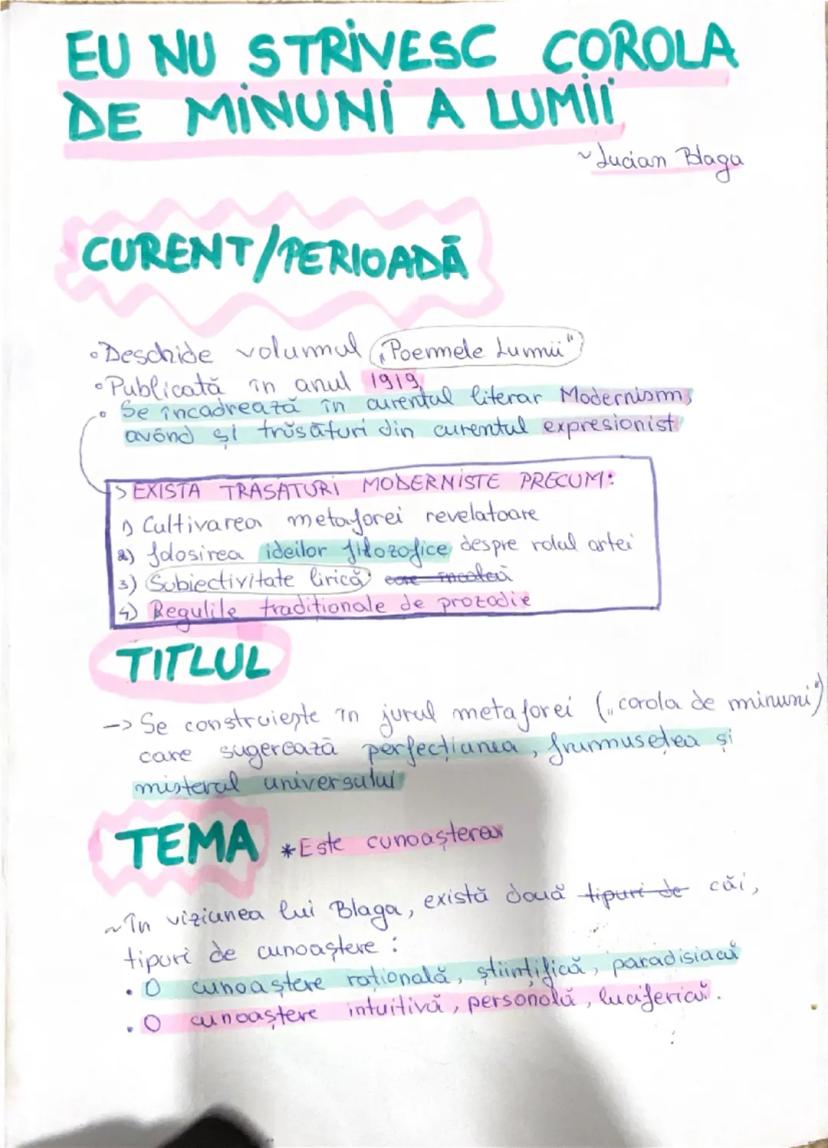 EU NU STRIVESC COROLA
DE MINUNI A LUMII
~Lucian Blaga
CURENT/PERIOADĂ
• Deschide volumul „Poemele Lumii"
• Publicată în anul 1919
• Se încadrează în curentul literar Modernism,
având și trăsături din curentul expresionist
> EXISTA TRASATURI MODERNISTE PRECUM:
1) Cultivarea metaforei revelatoare
2) folosirea ideilor filozofice despre rolul artei
3) Subiectivitate lirică
4) Regulile traditionale de prozodie
TITLUL
-> Se construiește în jurul metaforei („corola de minuni")
care sugerează perfecțiunea, frumusețea și
misterul universului
TEMA *Este cunoașterea
~În viziunea lui Blaga, există două tipuri de căi,
tipuri de cunoaștere:
• O cunoaștere rațională, științifică, paradisiacă
• O cunoaștere intuitivă, personală, luciferică.